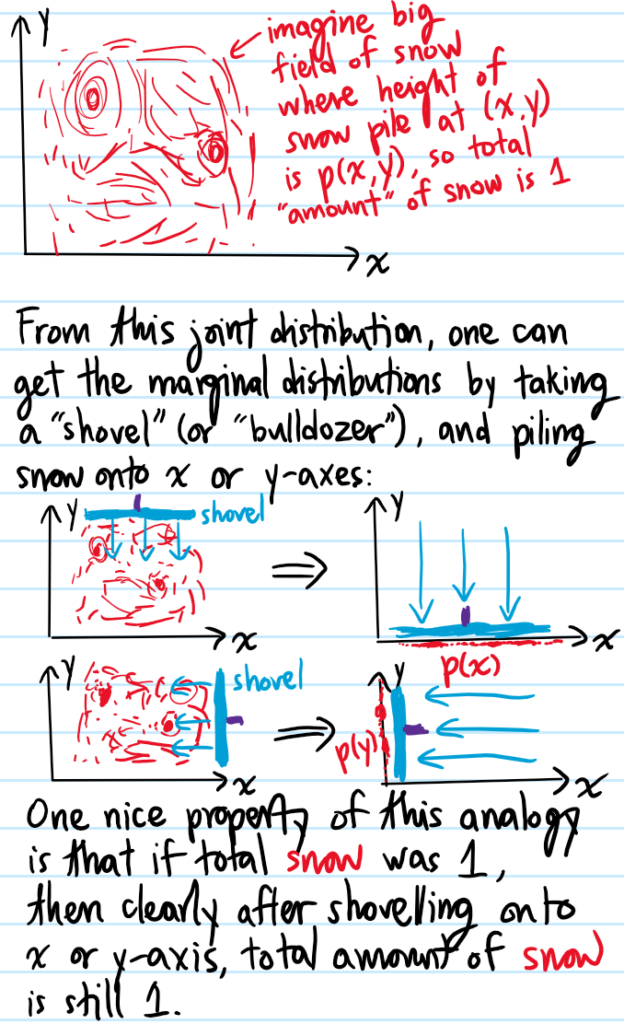 y
imagine big
field of snow
where height of
snow pile at (x,y)
is p(x,y), so total
"amount" of snow is 1
x
From this joint distribution, one can
get the marginal distributions by taking
a "shovel" (or "bulldozer"), and piling
snow onto x or y-axes:
y
shovel
x
⇒
y
x
p(x)
y
shovel
x
⇒
y
p(y)
x
One nice property of this analogy
is that if total snow was 1,
then clearly after shovelling onto
x or y-axis, total amount of snow
is still 1.